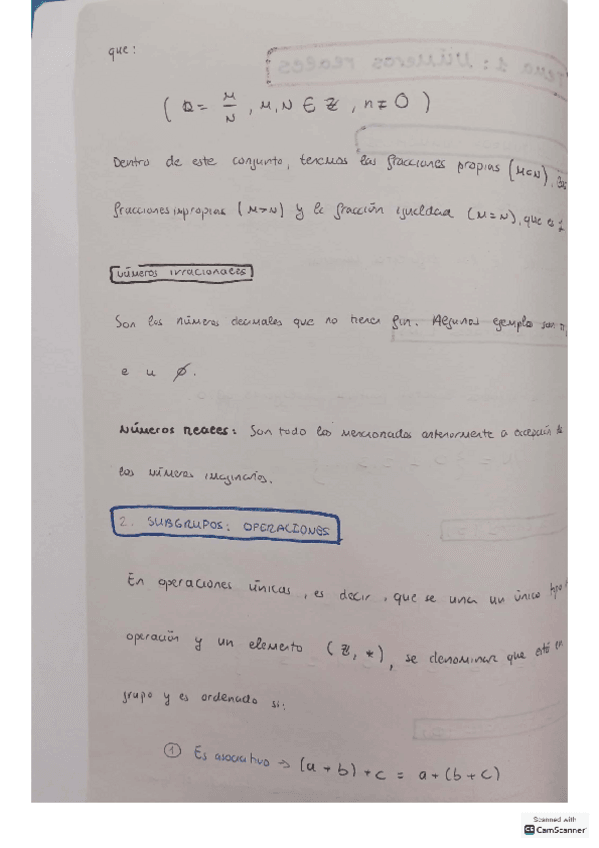 que:
( Q = M/N , M, N ∈ Z , n ≠ 0 )
Dentro de este conjunto, tenemos las fracciones propias (M<N), las
fracciones impropias (M>N) y la fracción igualdad (M=N), que es 1
Números irracionales
Son los números decimales que no tienen fin. Algunos ejemplos son π,
e u ø.
Números reales: Son todo los mencionados anteriormente a excepción de
los números imaginarios.
2. SUBGRUPOS: OPERACIONES
En operaciones únicas, es decir, que se una un único tipo
operación y un elemento (Z, *), se denominar que está en
grupo y es ordenado si:
① Es asociativo → (a + b) + c = a + (b + c)
Scanned with
CS CamScanner